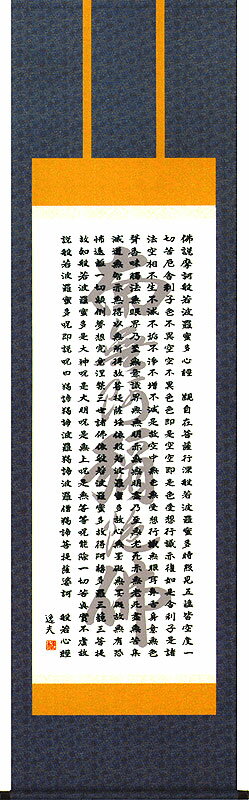 佛說摩訶般若波羅蜜多心經 觀自在菩薩行深般若波羅蜜多時照見五蘊皆空度一
切苦厄舍利子色不異空空不異色色即是空空即是色受想行識亦復如是舍利子是諸
法空相不生不滅不垢不淨不增不減是故空中無色無受想行識無眼耳鼻舌身意無色
聲香味觸法無眼界乃至無意識界無無明亦無無明盡乃至無老死亦無老死盡無苦集
滅道無智亦無得以無所得故菩提薩埵依般若波羅蜜多故心無罣礙無罣礙故無有恐
怖遠離一切顛倒夢想究竟涅槃三世諸佛依般若波羅蜜多故得阿耨多羅三藐三菩提
故知般若波羅蜜多是大神呪是大明呪是無上呪是無等等呪能除一切苦真實不虛故
說般若波羅蜜多呪即說呪曰羯諦羯諦波羅羯諦波羅僧羯諦菩提薩婆訶 般若心經
逸夫
南無阿彌陀佛